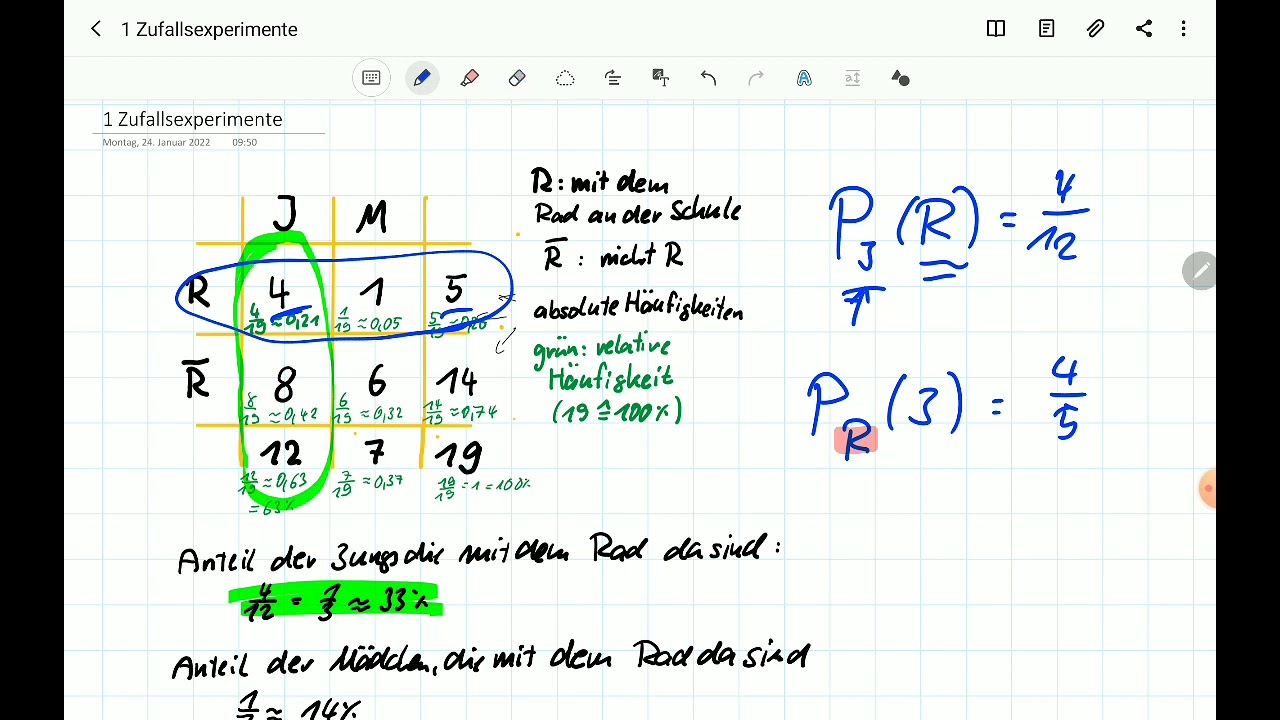 1 Zufallsexperimente
1 Zufallsexperimente
Montag, 24. Januar 2022 09:50
J M
R 4 1 5
4/19 ≈ 0,21 1/19 ≈ 0,05 5/19 ≈ 0,26
R̅ 8 6 14
8/19 ≈ 0,42 6/19 ≈ 0,32 14/19 ≈ 0,74
12 7 19
12/19 ≈ 0,63 7/19 ≈ 0,37 19/19 = 1 = 100%
= 63%
R: mit dem
Rad an der Schule
R̅ : nicht R
absolute Häufigkeiten
grün: relative
Häufigkeit
(19 ≙ 100%)
P_J (R) = 4/12
P_R (J) = 4/5
Anteil der Jungs die mit dem Rad da sind:
4/12 = 1/3 ≈ 33%
Anteil der Mädchen, die mit dem Rad da sind
≈ 14%